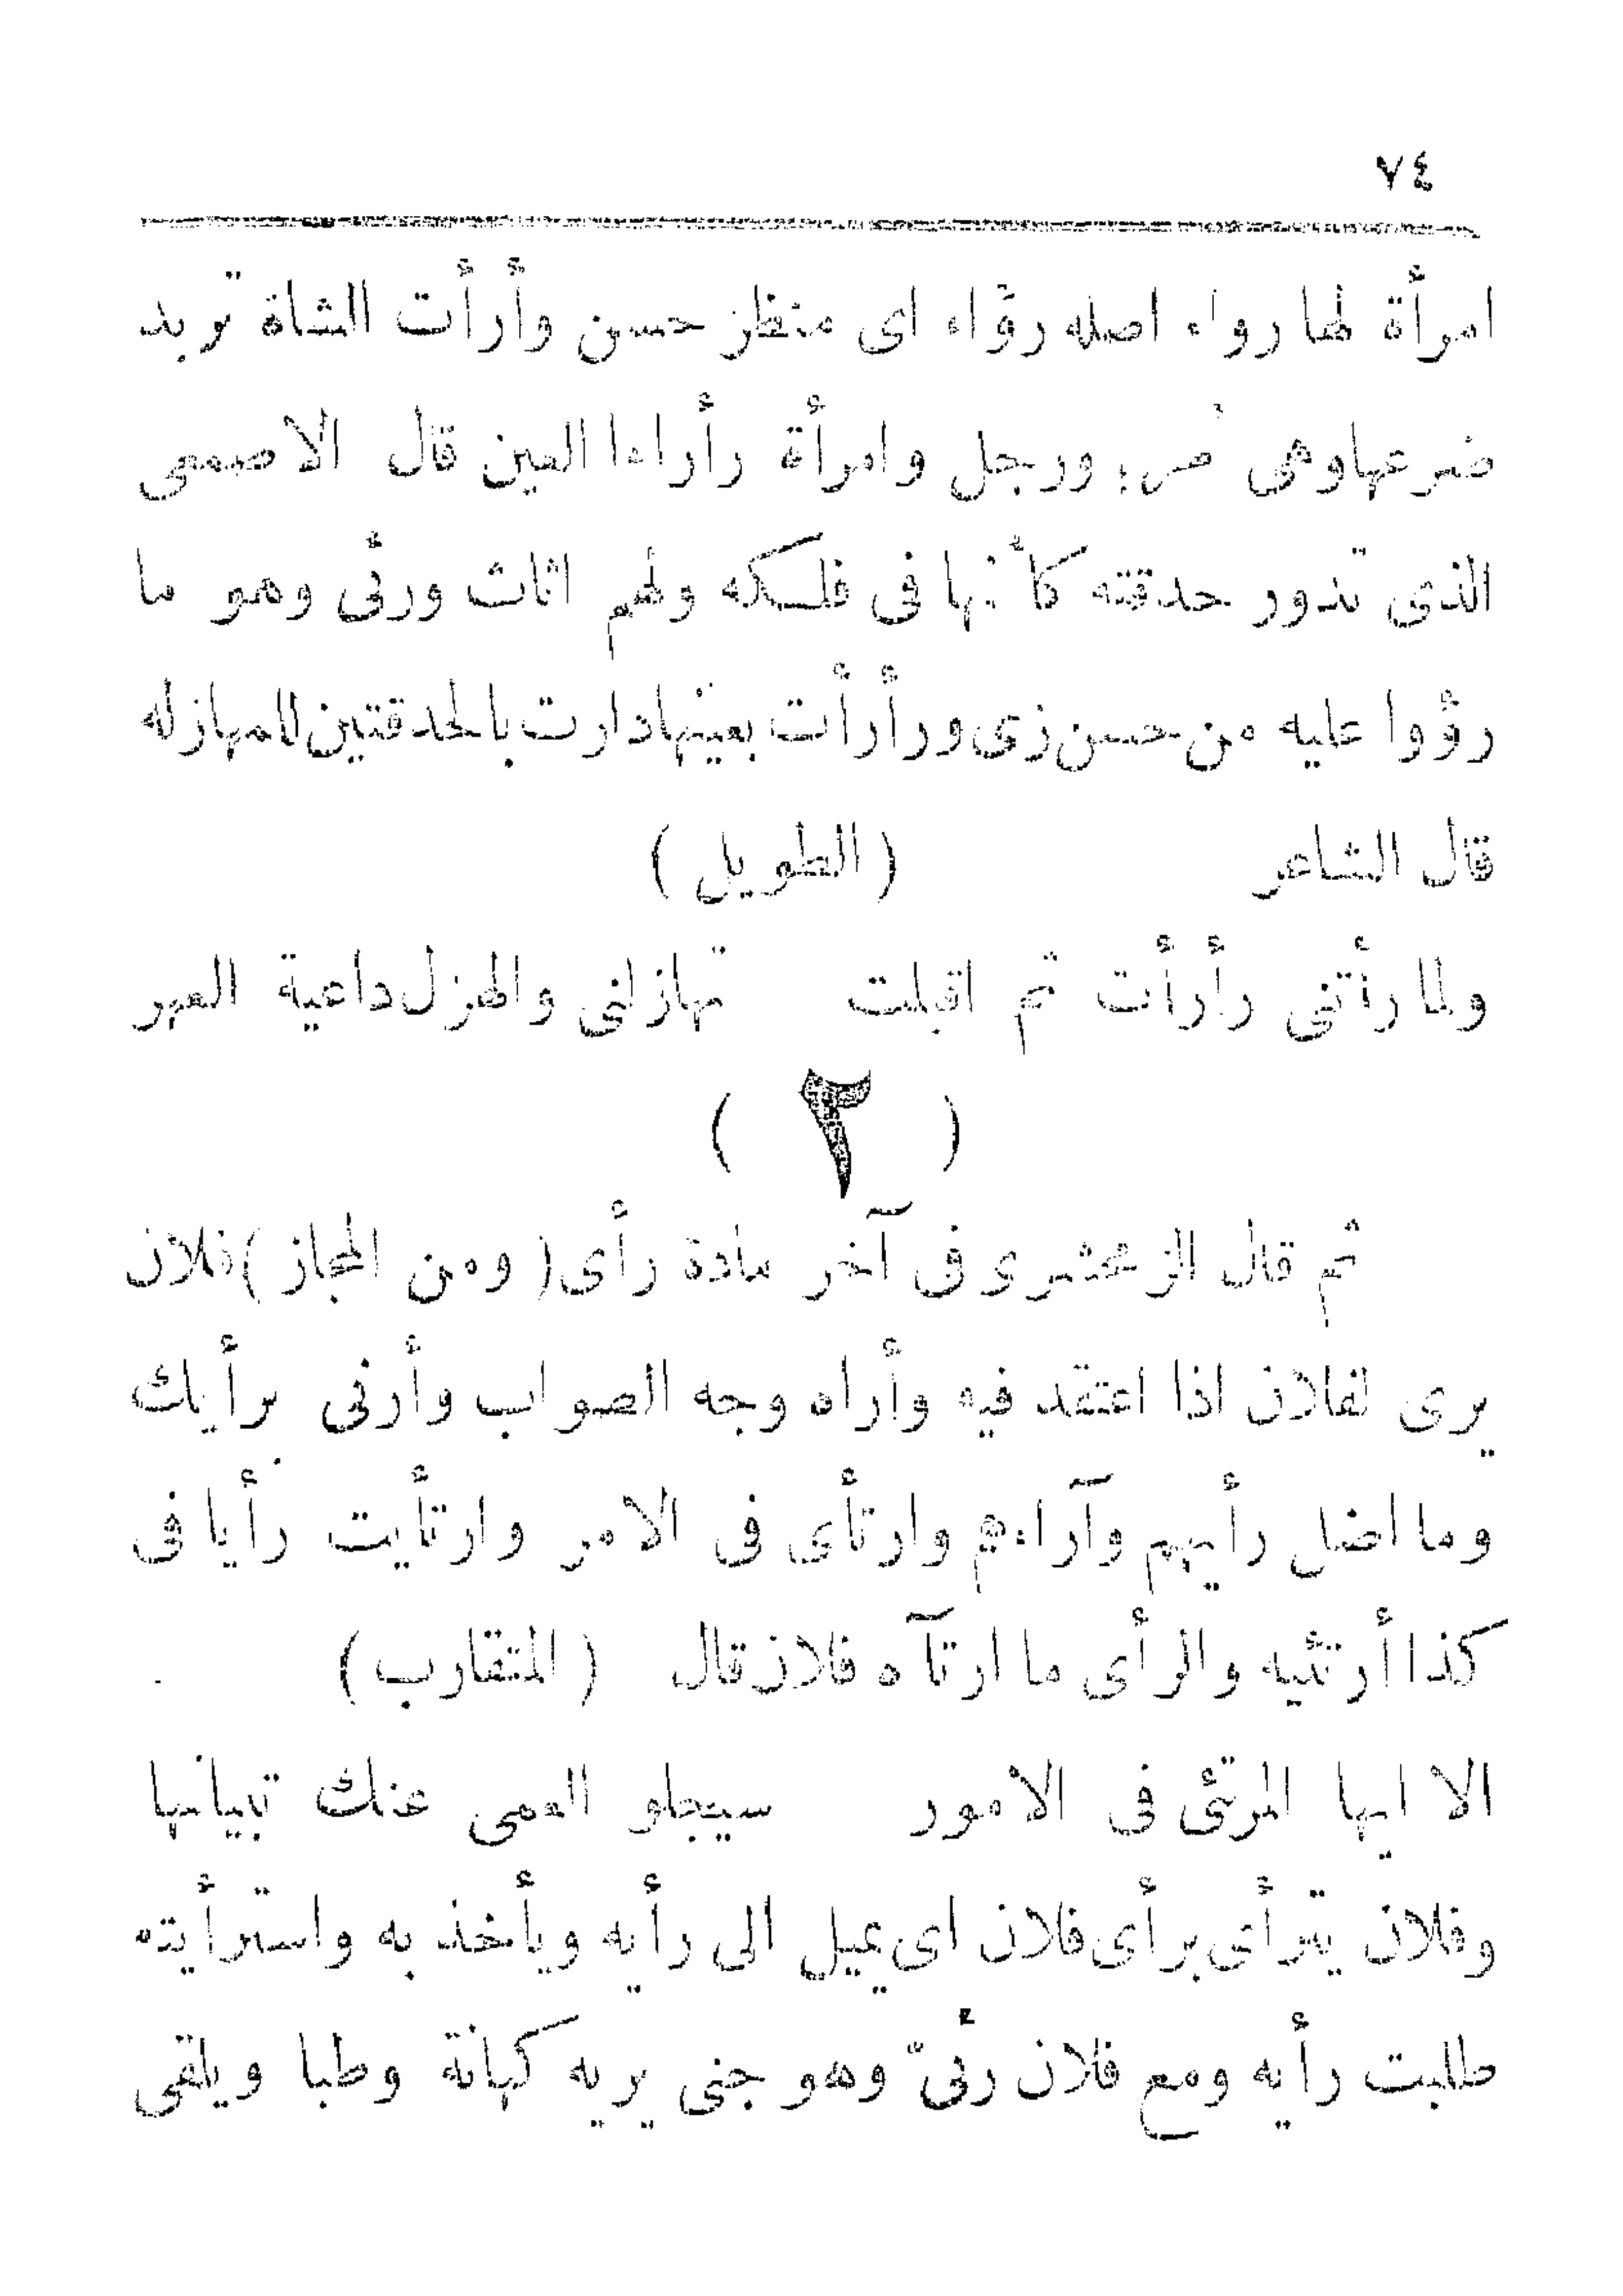 ٧٤
امرأة لها رواء اصله رؤاء اى منظر حسن وأرأت الشاة تريد
ضرعها وهى ورجل وامرأة رأراءا العين قال الاصمعى
الذى تدور حدقته كأنها فى فلكه ولهم اثاث ورئى وهو ما
رؤوا عليه من حسن زى ورأرأت بعينها دارت بالحدقتين للمهازله
قال الشاعر ( الطويل )
ولما رأتنى رأرأت ثم اقبلت تهازلنى والهزل داعية العهر
( ٣ )
ثم قال الزمخشرى فى آخر مادة رأى ( ومن المجاز ) فلان
يرى لفلان اذا اعتقد فيه وأراه وجه الصواب وأرنى برأيك
وما اضل رأيهم وآراءهم وارتأى فى الامر وارتأيت رأيا فى
كذا أرتئيه والرأى ما ارتآه فلان قال ( المتقارب )
الا ايها المرتئى فى الامور سيجلو العمى عنك تبيانها
وفلان يترأى برأى فلان اى يميل الى رأيه ويأخذ به واسترأيته
طلبت رأيه ومع فلان رئىّ وهو جنى يريه كهانة وطبا ويلقى